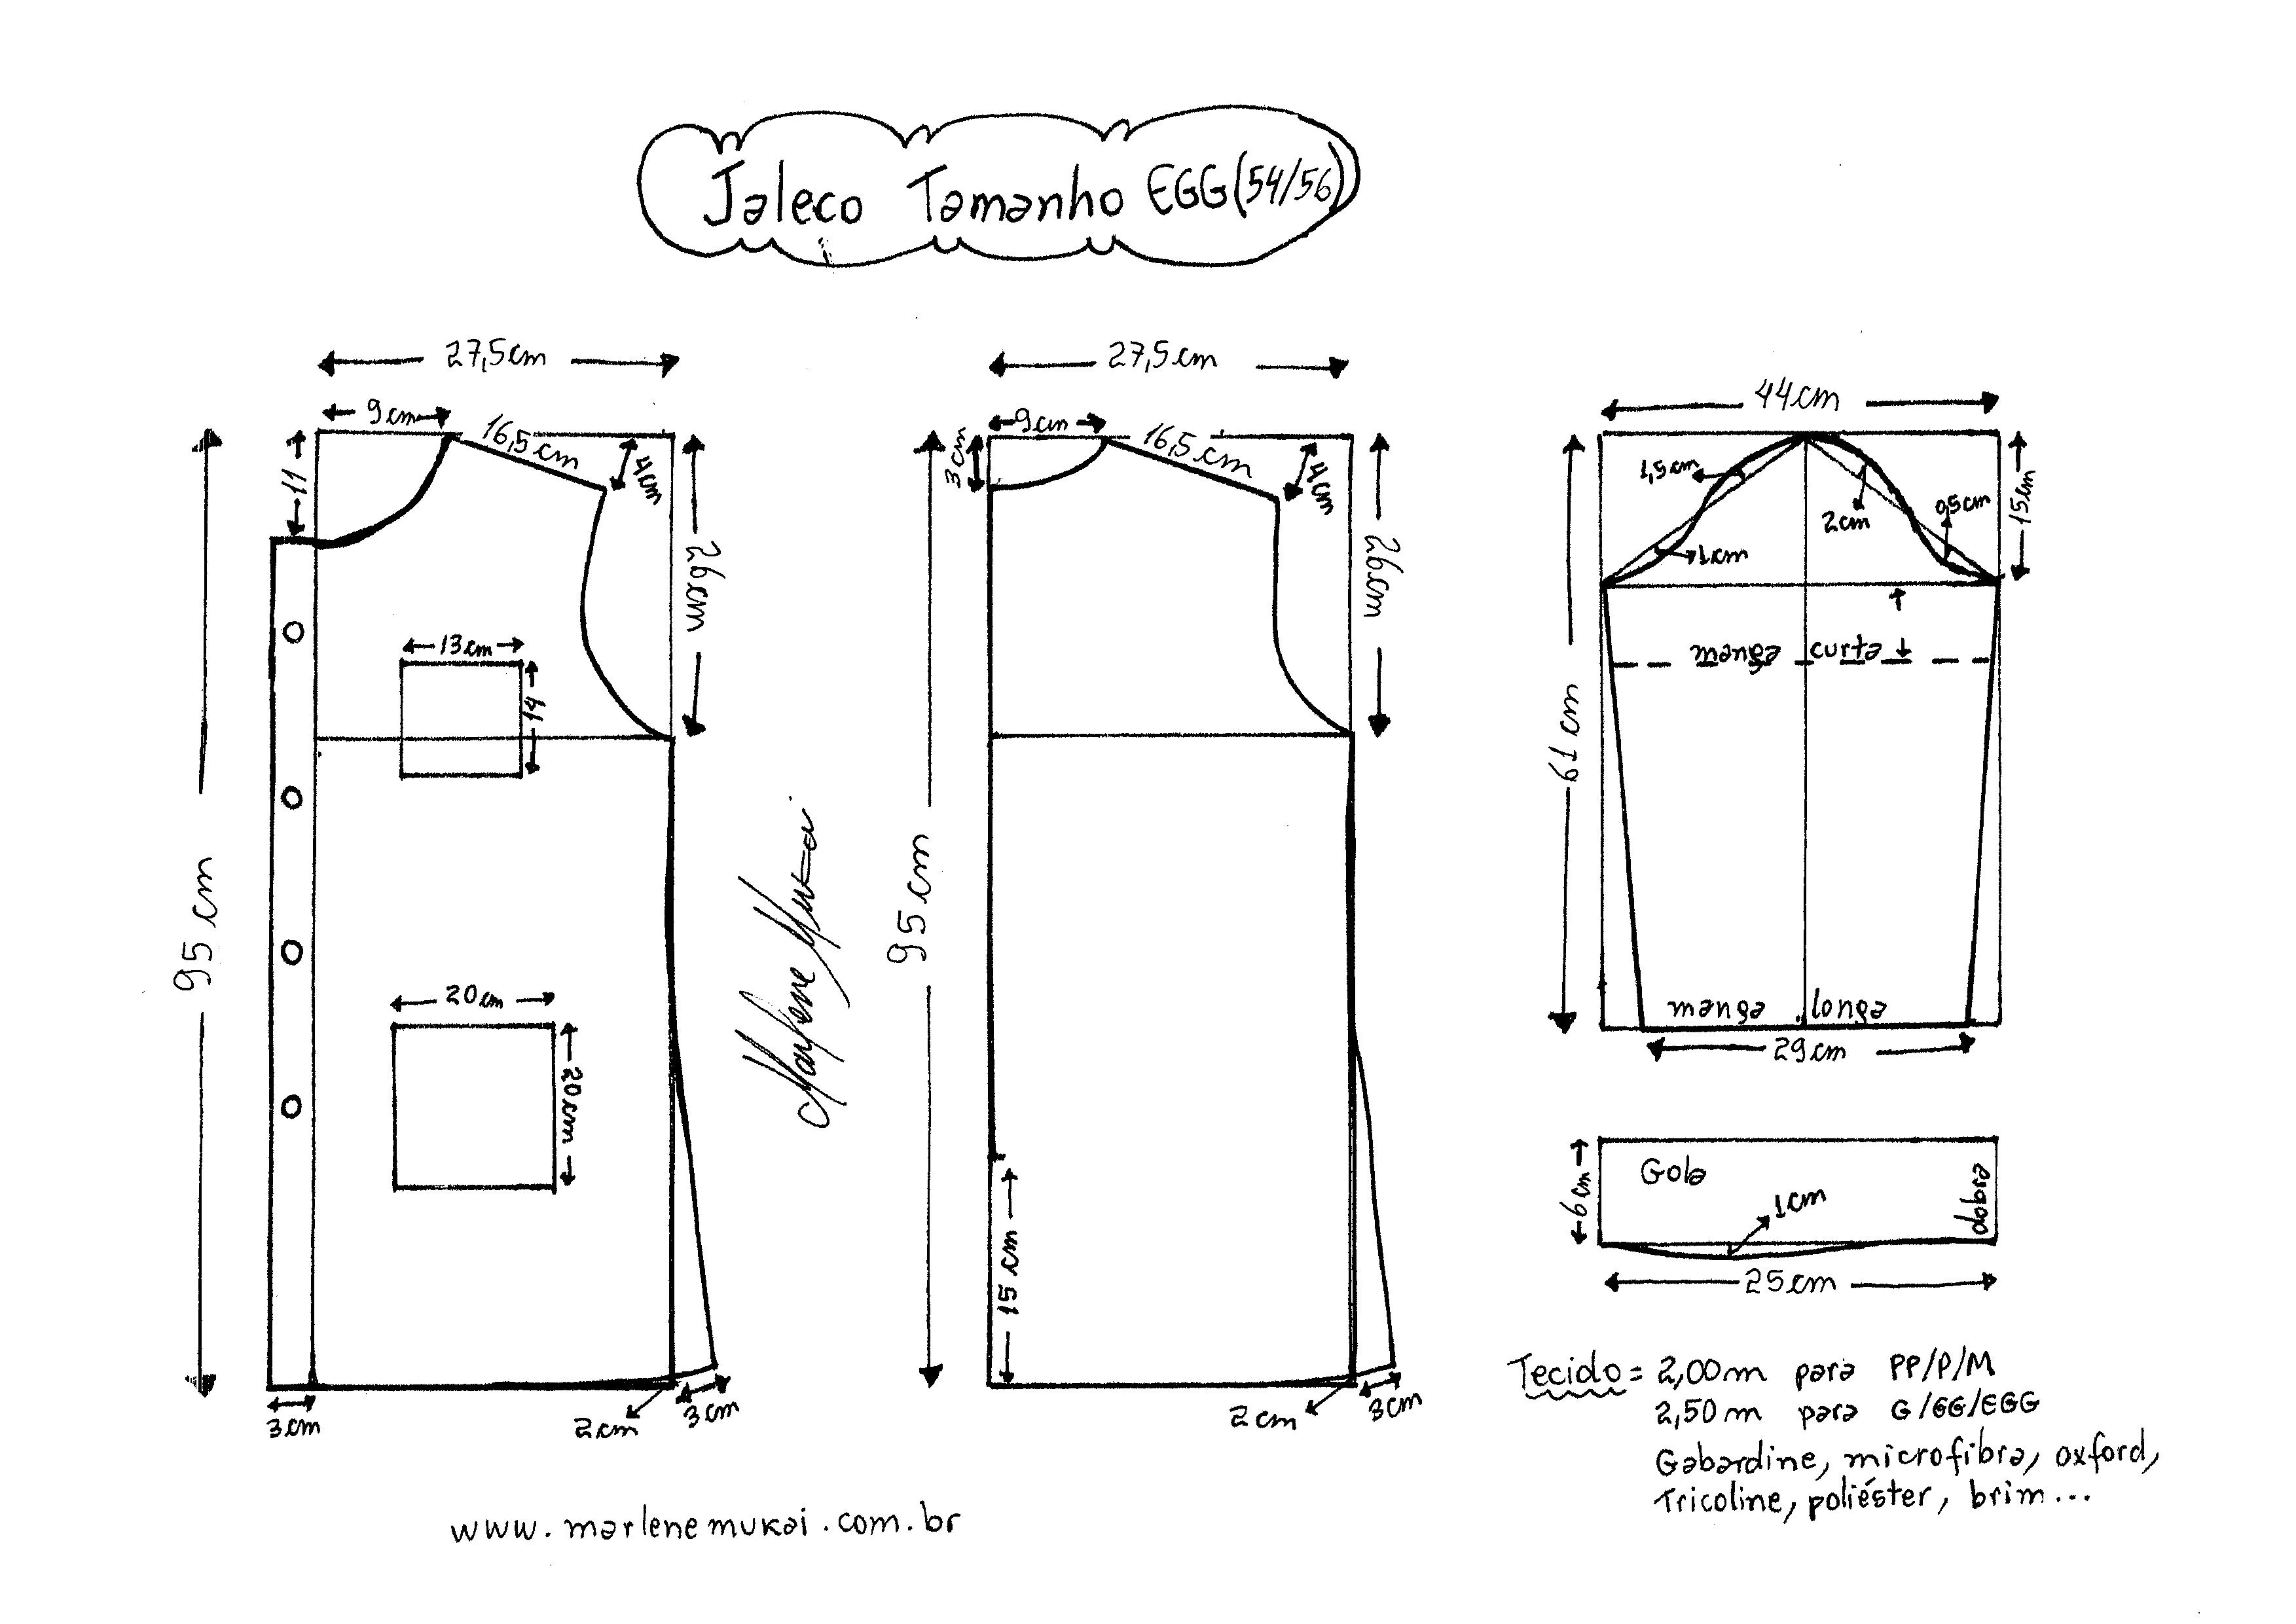 Jaleco Tamanho EGG(54/56)
27,5cm
9cm
16,5cm
4cm
11
26cm
13cm
14
95cm
20cm
20cm
3cm
2cm
3cm
Marlene Mukai
27,5cm
9cm
16,5cm
3cm
4cm
26cm
95cm
15cm
2cm
3cm
44cm
1,5cm
2cm
0,5cm
1cm
15cm
manga curta
61cm
manga longa
29cm
6cm
Gola
dobra
1cm
25cm
Tecido = 2,00m para PP/P/M
2,50m para G/GG/EGG
Gabardine, microfibra, oxford,
Tricoline, poliéster, brim...
www.marlenemukai.com.br